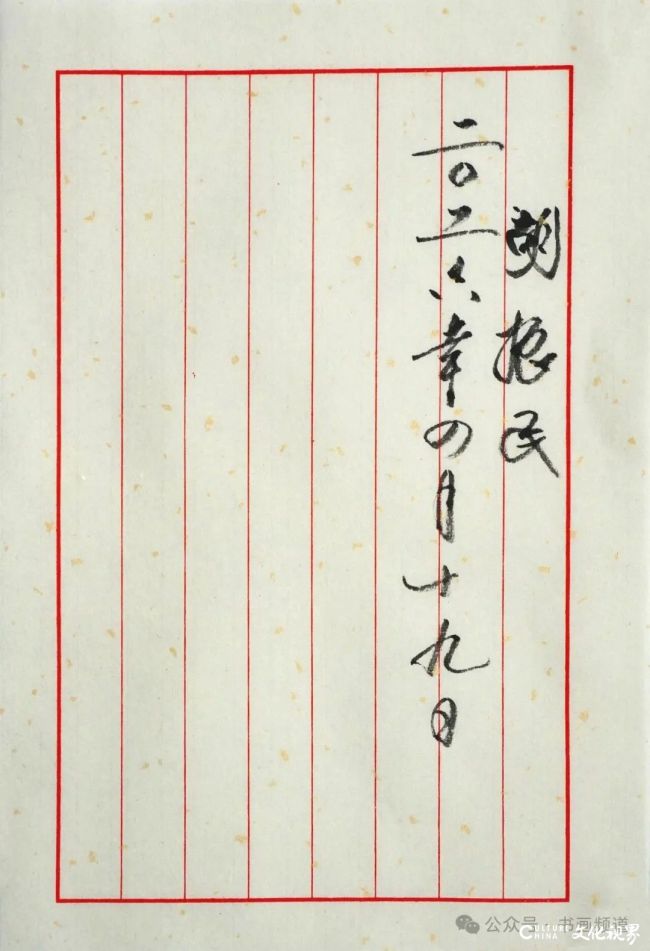 胡振民
二〇二六年四月十九日
公众号·书画频道
CULTURE CHINA 文化视界